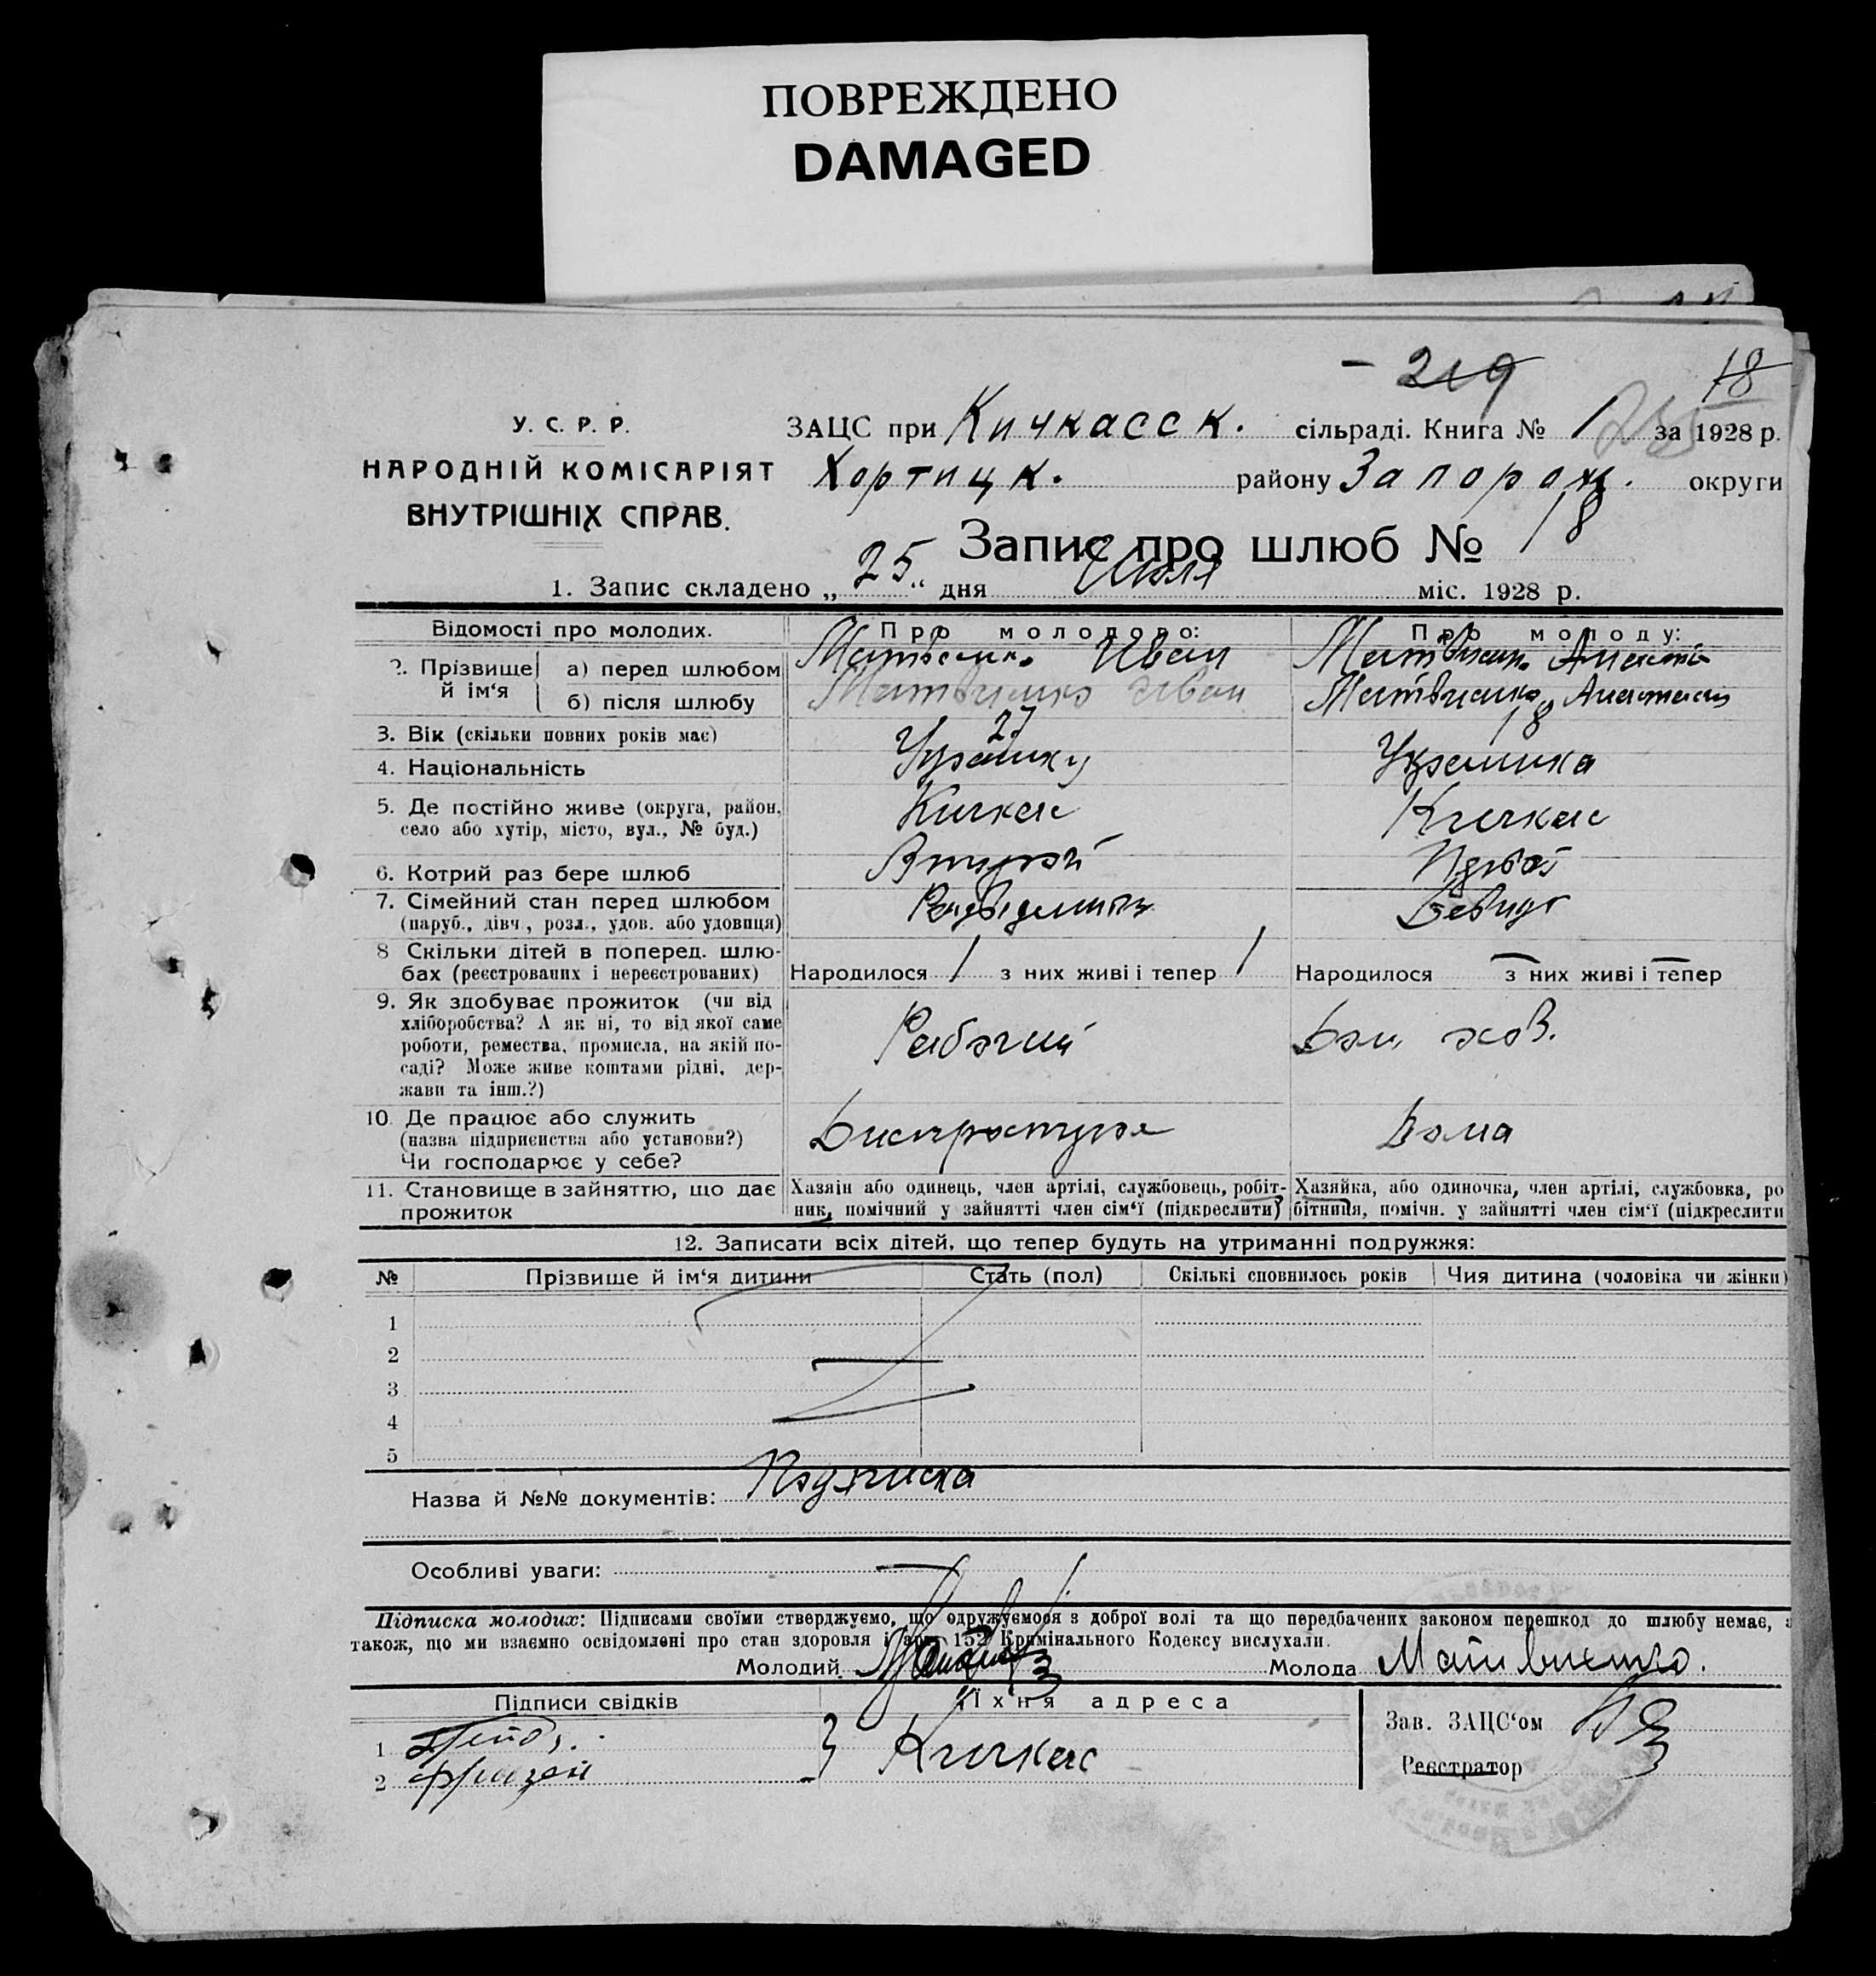 ПОВРЕЖДЕНО
DAMAGED
- 219
18
У. С. Р. Р.
НАРОДНІЙ КОМІСАРІЯТ
ВНУТРІШНІХ СПРАВ.
ЗАЦС при Кичкасск. сільраді. Книга № 1 за 1928 р.
Хортицк. району Запорож. округи
Запис про шлюб № 18
1. Запис складено „ 25 “ дня Июля міс. 1928 р.
Відомості про молодих. Про молодого: Про молоду:
2. Прізвище й ім‘я а) перед шлюбом Иван
б) після шлюбу Матвиенко Иван Матвиенко Анастасия
3. Вік (скільки повних років має) 27 18
4. Національність Украинка
5. Де постійно живе (округа, район, село або хутір, місто, вул., № буд.) Кичкас Кичкас
6. Котрий раз бере шлюб Второй
7. Сімейний стан перед шлюбом (паруб., дівч., розл., удов. або удовиця)
8 Скільки дітей в поперед. шлюбах (реєстрованих і нереєстрованих) Народилося 1 з них живі і тепер 1 Народилося — з них живі і тепер —
9. Як здобуває прожиток (чи від
хліборобства? А як ні, то від якої саме
роботи, ремества, промисла, на якій по-
саді? Може живе коштами рідні, дер-
жави та інш.?)
Рабочий Дом. хоз.
10. Де працює або служить
(назва підприємства або установи?)
Чи господарює у себе?
Днепрострое Дома
11. Становище в зайняттю, що дає
прожиток
Хазяїн або одинець, член артілі, службовець, робіт-
ник, помічний у зайнятті член сім‘ї (підкреслити)
Хазяйка, або одиночка, член артілі, службовка, ро
бітниця, помічн. у зайнятті член сім‘ї (підкреслити
12. Записати всіх дітей, що тепер будуть на утриманні подружжя:
№ Прізвище й ім‘я дитини Стать (пол) Скількі сповнилось років Чия дитина (чоловіка чи жінки)
1
2
3
4
5
Назва й №№ документів: Подписка
Особливі уваги: —
Підписка молодих: Підписами своїми стверджуємо, що одружуємося з доброї волі та що передбачених законом перешкод до шлюбу немає, а
також, що ми взаємно освідомлені про стан здоровля і арт. 152 Кримінального Кодексу вислухали.
Молодий Молода Матвиенко.
Підписи свідків Їхня адреса
1
2
Кичкас
Зав. ЗАЦС‘ом
Реєстратор